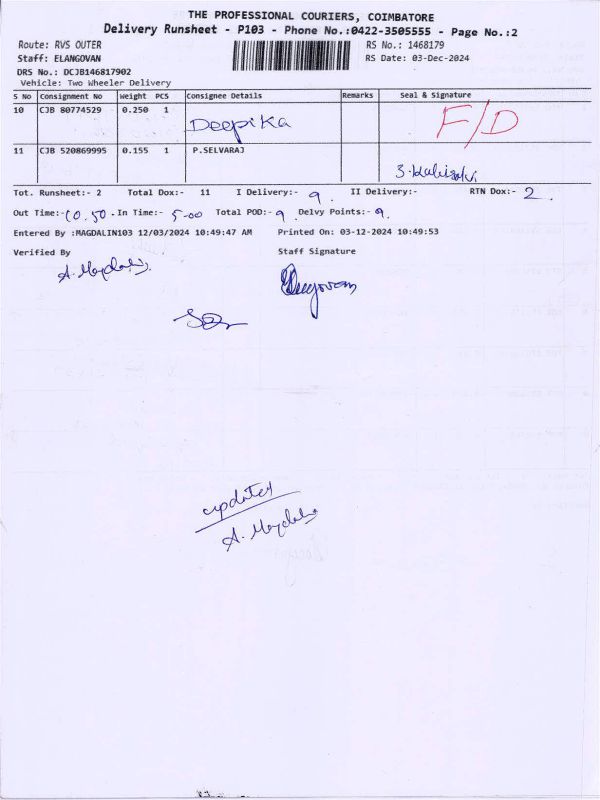 THE PROFESSIONAL COURIERS, COIMBATORE
Delivery Runsheet - P103 - Phone No.:0422-3505555 - Page No.:2
Route: RVS OUTER RS No.: 1468179
Staff: ELANGOVAN RS Date: 03-Dec-2024
DRS No.: DCJB146817902
Vehicle: Two Wheeler Delivery
S No Consignment No Weight PCS Consignee Details Remarks Seal & Signature
10 CJB 80774529 0.250 1 Deepika F/D
11 CJB 520869995 0.155 1 P.SELVARAJ
Tot. Runsheet:- 2 Total Dox:- 11 I Delivery:- 9 II Delivery:- RTN Dox:- 2
Out Time:- 10.50. In Time:- 5-00 Total POD:- 9 Delvy Points:- 9.
Entered By :MAGDALIN103 12/03/2024 10:49:47 AM Printed On: 03-12-2024 10:49:53
Verified By Staff Signature
A. Magdalin
Elangovan
updated
A. Magdalin